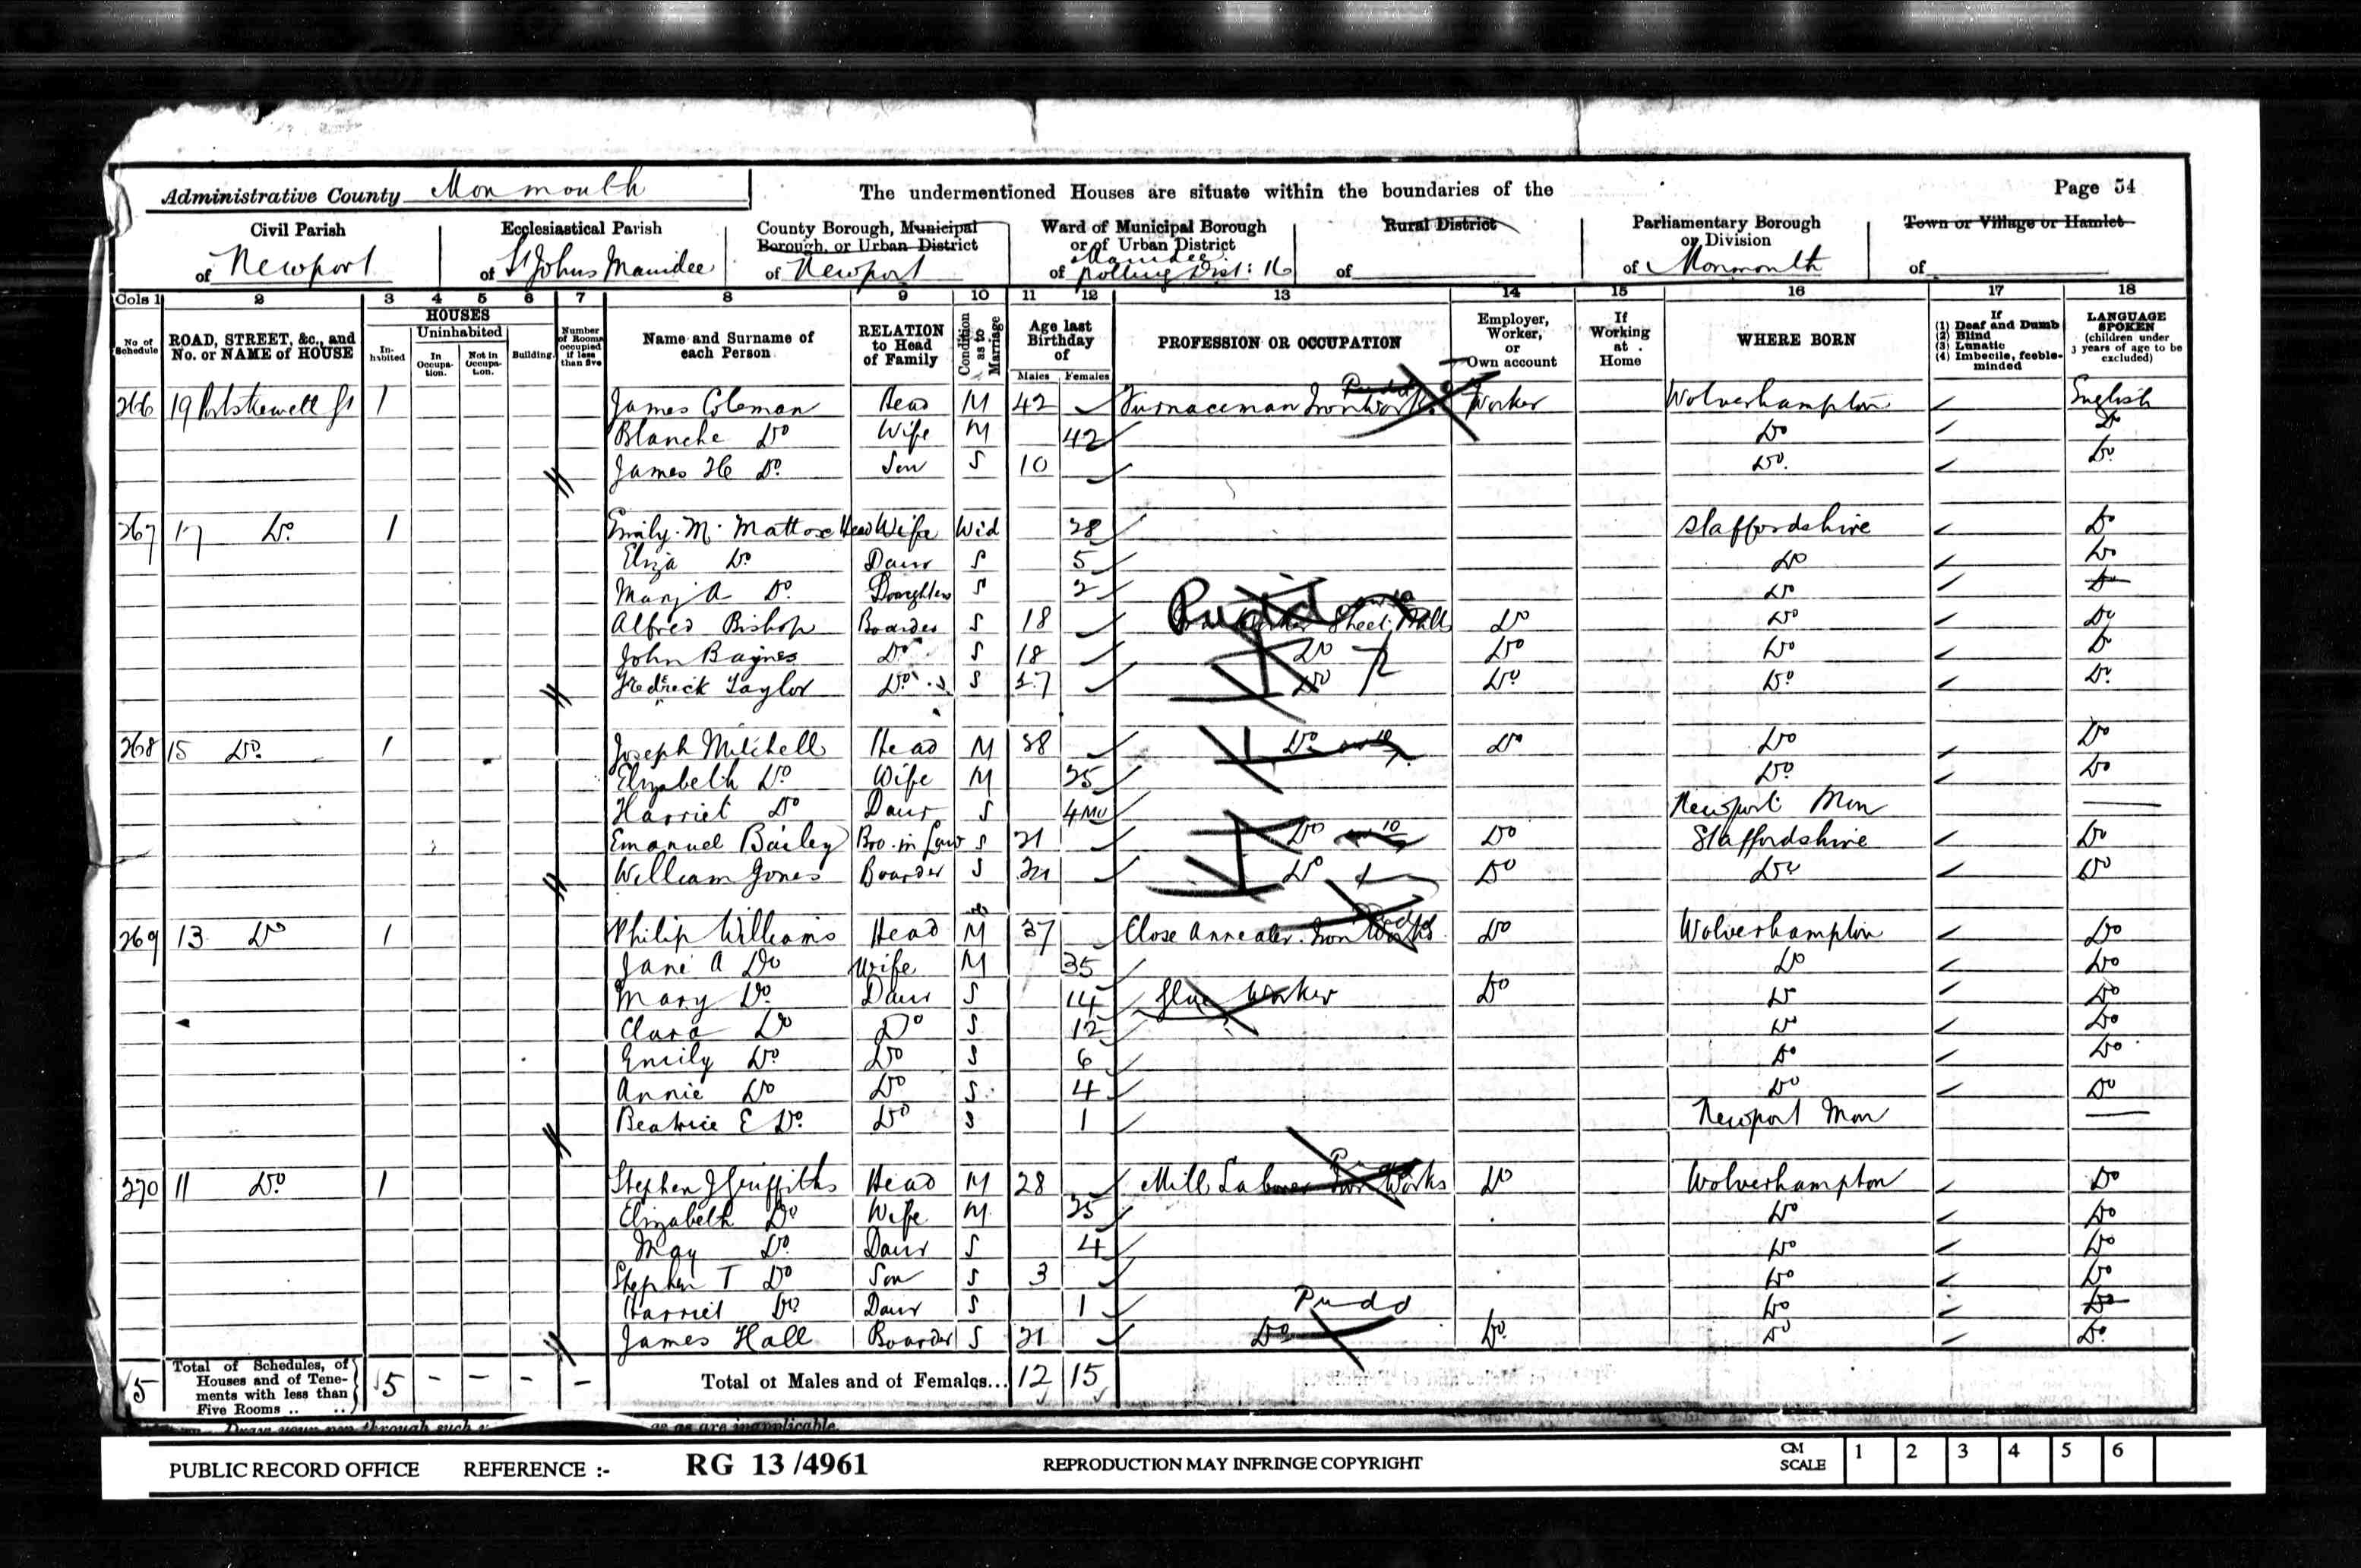 Administrative County Monmouth The undermentioned Houses are situate within the boundaries of the Page 54
Civil Parish of Newport
Ecclesiastical Parish of St Johns Maindee
County Borough, Municipal Borough, or Urban District of Newport
Ward of Municipal Borough or of Urban District of Maindee Polling Dist: 16
Rural District of
Parliamentary Borough or Division of Monmouth
Town or Village or Hamlet of
Cols 1 2 3 4 5 6 7 8 9 10 11 12 13 14 15 16 17 18
No. of Schedule
ROAD, STREET, &c., and No. or NAME of HOUSE
HOUSES
Inhabited
Uninhabited
In Occupation.
Not in Occupation.
Building.
Number of Rooms occupied if less than five
Name and Surname of each Person
RELATION to Head of Family
Condition as to Marriage
Age last Birthday of
Males Females
PROFESSION OR OCCUPATION
Employer, Worker, or Own account
If Working at Home
WHERE BORN
If (1) Deaf and Dumb (2) Blind (3) Lunatic (4) Imbecile, feeble-minded
LANGUAGE SPOKEN (children under 3 years of age to be excluded)
266 19 Portskewett St 1 James Coleman Head M 42 Furnaceman Ironworks Pudd Worker Wolverhampton English
Blanche Do Wife M 42 Do Do
James H Do Son S 10 Do Do
267 17 Do 1 Emily M. Mattox Head Wife Wid 28 Staffordshire Do
Eliza Do Daur S 5 Do Do
Mary A Do Daughter S 2 Do Do
Alfred Bishop Boarder S 18 Pudd Sheet Mill Do Do Do
John Baynes Do S 18 Do Do Do Do
Fredrick Taylor Do S 17 Do Do Do Do
268 15 Do 1 Joseph Mitchell Head M 38 Do Do Do Do
Elizabeth Do Wife M 25 Do Do
Harriet Do Daur S 4 Mo Newport Mon
Emanuel Bailey Bro-in-Law S 21 Do 10 Do Staffordshire Do
William Jones Boarder S Do Do Do Do
269 13 Do 1 Philip Williams Head M 37 Close Annealer Iron Works Do Wolverhampton Do
Jane A Do Wife M 35 Do Do
Mary Do Daur S 14 Glue Worker Do Do Do
Clara Do Do S 12 Do Do
Emily Do Do S 6 Do Do
Annie Do Do S 4 Do Do
Beatrice E Do Do S 1 Newport Mon
270 11 Do 1 Stephen J Griffiths Head M 28 Mill Laborer Iron Works Do Wolverhampton Do
Elizabeth Do Wife M 25 Do Do
May Do Daur S 4 Do Do
Stephen T Do Son S 3 Do Do
Harriet Do Daur S 1 Do Do
James Hall Boarder S 21 Pudd Do Do Do Do
5 Total of Schedules, of Houses and of Tenements with less than Five Rooms .. .. 5 - - - - Total of Males and of Females... 12 15
PUBLIC RECORD OFFICE REFERENCE :- RG 13 /4961 REPRODUCTION MAY INFRINGE COPYRIGHT CM SCALE 1 2 3 4 5 6